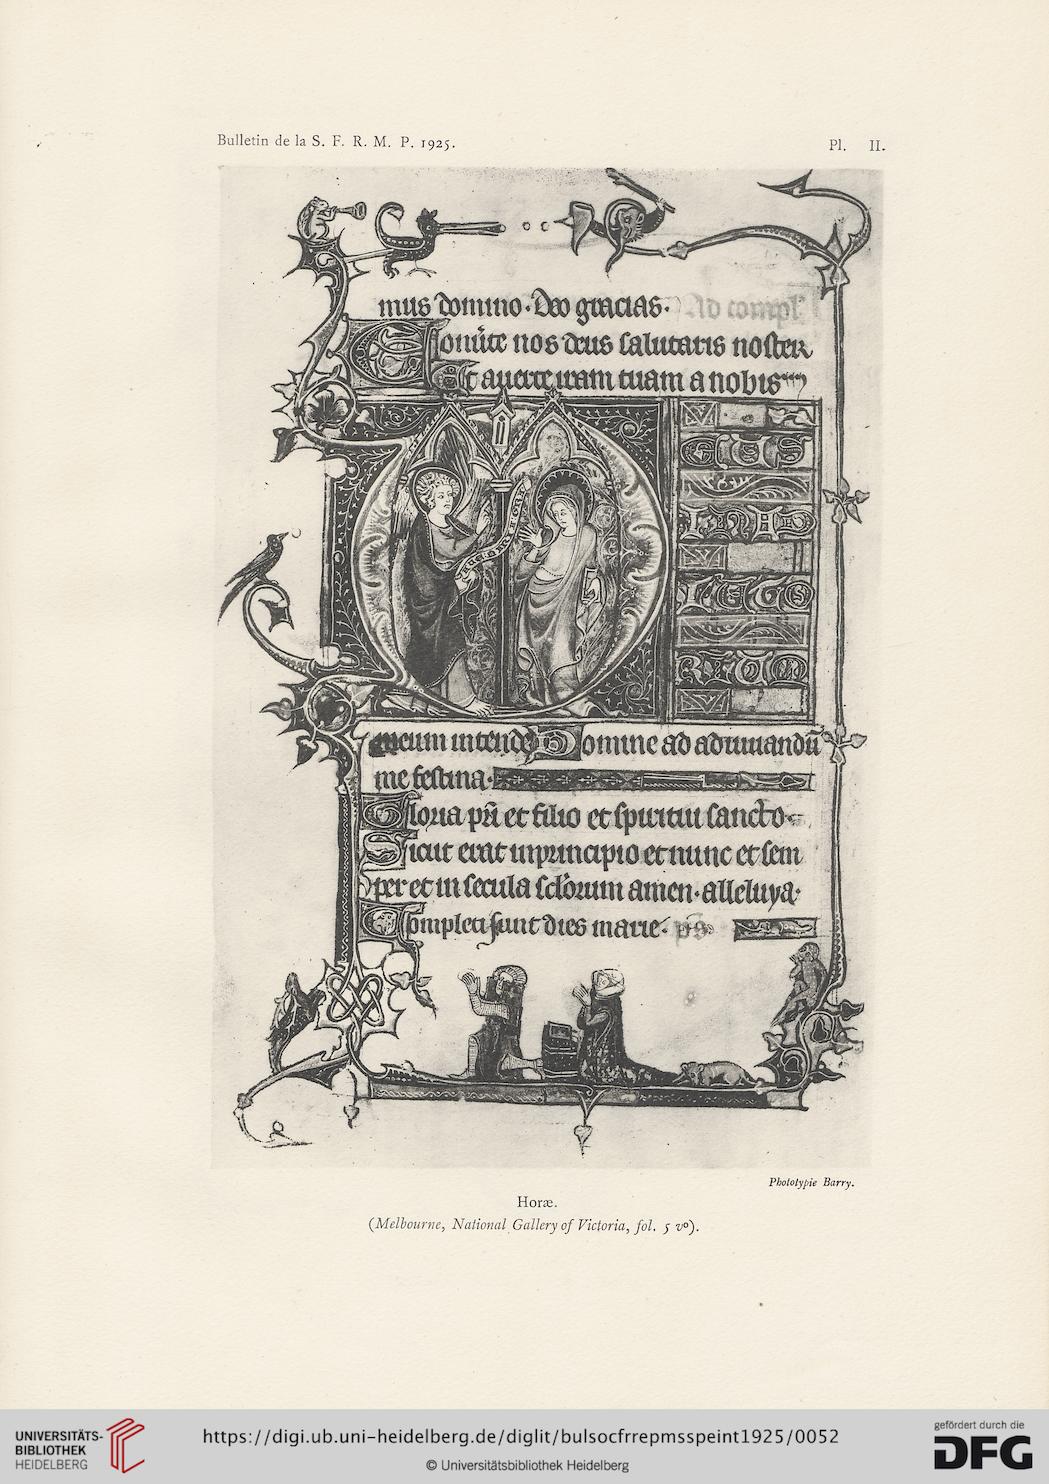 Bulletin de la S. F. R. M. P. 1925.
Pl. II.
mus domino · Deo gracias · Ad compl
Conuerte nos deus salutaris noster
Et auerte iram tuam a nobis
DEUS
IN AD
IUTO
RIUM
meum intende Domine ad adiuuandū
me festina ·
Gloria pri et filio et spiritui sancto
Sicut erat in principio et nunc et sem
per et in secula sclorum amen · alleluya ·
Completi sunt dies marie · ps
Phototypie Barry.
Horæ.
(Melbourne, National Gallery of Victoria, fol. 5 vo).
UNIVERSITÄTS-
BIBLIOTHEK
HEIDELBERG
https://digi.ub.uni-heidelberg.de/diglit/bulsocfrrepmsspeint1925/0052
© Universitätsbibliothek Heidelberg
gefördert durch die
DFG